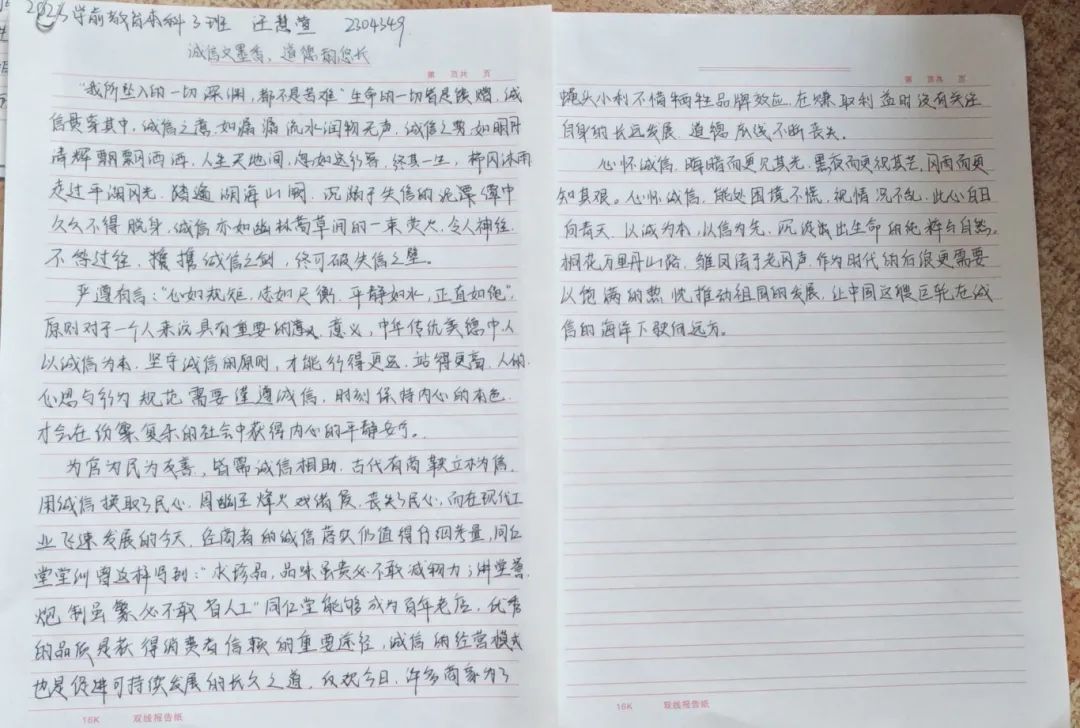 2023学前教育本科3班 汪慧萱 2304349
诚信文墨香、道德韵悠长
第 页共 页
“我所坠入的一切深渊，都不是苦难”生命的一切皆是馈赠，诚
信贯穿其中，诚信之音，如潺潺流水润物无声，诚信之势，如明月
清辉飘飘洒洒，人生天地间，忽如远行客，终其一生，栉风沐雨
走过平湖风光，踏遍湖海山河，沉溺于失信的泥潭潭中
久久不得脱身，诚信亦如幽林蔺草间的一束荧火，令人神往，
不念过往，携携诚信之剑，终可破失信之壁。
严遵有言：“心如规矩，志如尺衡，平静如水，正直如绳”，
原则对于一个人来说具有重要的意义，中华传统美德中人
以诚信为本，坚守诚信的原则，才能行得更远，站得更高，人的
心思与行为规范需要谨遵诚信，时刻保持内心的本色，
才会在纷繁复杂的社会中获得内心的平静安宁。
为官为民为友善，皆需诚信相助，古代有商鞅立木为信，
用诚信换取了民心，周幽王烽火戏诸侯，丧失了民心，而在现代工
业飞速发展的今天，经商者的诚信落实仍值得仔细考量，同仁
堂堂训曾这样写到：“求珍品，品味虽贵必不敢减物力；讲堂誉，
炮制虽繁必不敢省人工”同仁堂能够成为百年老店，优秀
的品质是获得消费者信赖的重要途径，诚信的经营模式
也是促进可持续发展的长久之道，反观今日，许多商家为了
16K 双线报告纸
第 页共 页
蝇头小利不惜牺牲品牌效应，在赚取利益时没有关注
自身的长远发展，道德底线不断丧失。
心怀诚信，晦暗而更见其光，黑夜而更视其芒，风雨而更
知其艰。心怀诚信，能处困境不慌，视情况不乱，此心自日
向青天，以诚为本，以信为先，沉淀出出生命的纯粹与自然。
桐花万里丹山路，雏凤清于老凤声，作为时代的后浪更需要
以饱满的热忱推动祖国的发展，让中国这艘巨轮在诚
信的海洋下驶向远方。
16K 双线报告纸